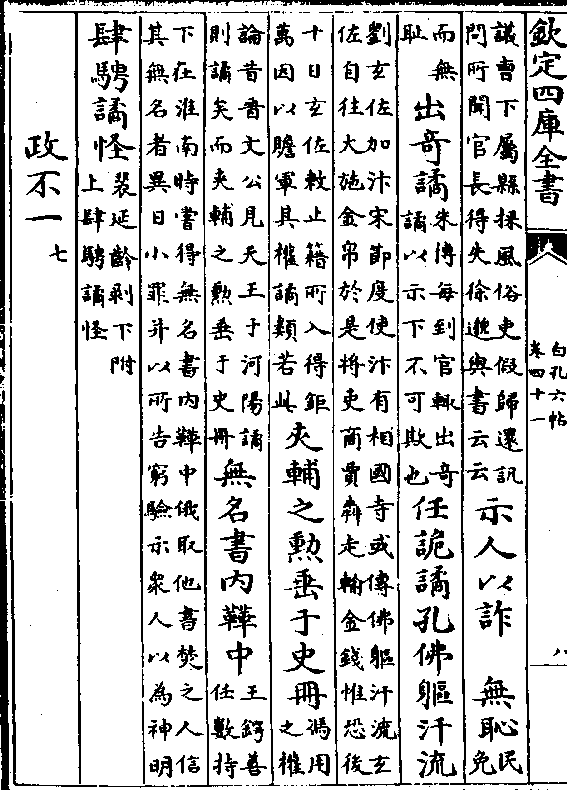 欽定四庫全書
白孔六帖
卷四十一
八
議曹下屬縣採風俗吏假歸還訊
問所聞官長得失徐邈與書云云
示人以詐　無恥
民
免
而無
恥
出奇譎
朱博每到官輒出奇
譎以示下不可欺也
任詭譎孔佛軀汗流
劉玄佐加汴宋節度使汴有相國寺或傳佛軀汗流玄
佐自往大施金帛於是將吏商賈奔走輸金錢惟恐後
十日玄佐敕止籍所入得鉅
萬因以贍軍其權譎類若此
夾輔之勲垂于史冊
馮用
之權
論昔晉文公見天王于河陽譎
則譎矣而夾輔之勲垂于史冊
無名書內鞾中
王鍔善
任數持
下在淮南時嘗得無名書內鞾中俄取他書焚之人信
其無名者異日小罪并以所告窮驗示衆人以為神明
肆騁譎怪
裴延齡剥下附
上肆騁譎怪
政不一
七